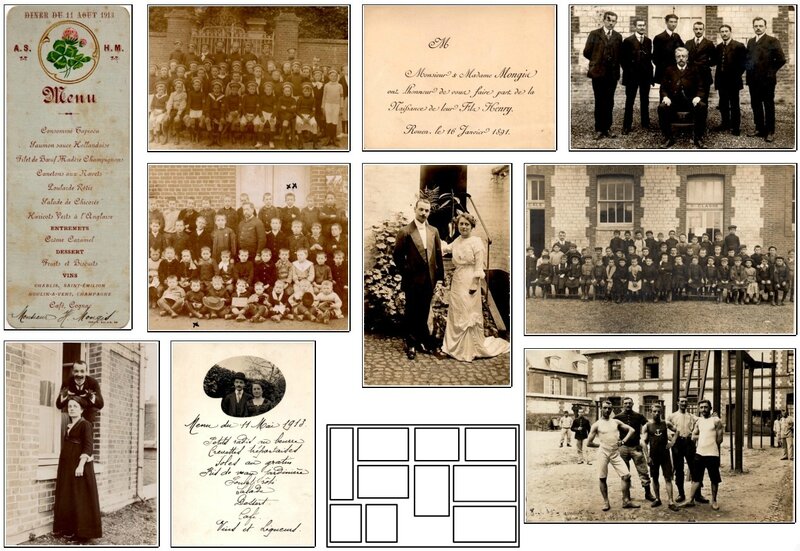 DINER DU 11 AOUT 1913
A. S. H. M.
Menu
Consommé Tapioca
Saumon sauce Hollandaise
Filet de Bœuf Madère Champignons
Canetons aux Navets
Poularde Rôtie
Salade de Chicorée
Haricots Verts à l'Anglaise
ENTREMETS
Crème Caramel
DESSERT
Fruits et Biscuits
VINS
CHABLIS, SAINT-ÉMILION
MOULIN-A-VENT, CHAMPAGNE
Café, Cognac
Monsieur H. Mongis
M
Monsieur & Madame Mongis
ont l'honneur de vous faire part de la
Naissance de leur Fils Henry.
Rouen, le 16 Janvier 1891.
xx
x
CLASSE
Menu du 11 Mai 1913
Petits radis au beurre
Crevettes
Soles au gratin
Ris de veau Jardinière
rôti
Salade
Dessert
Café
Vins et Liqueurs.